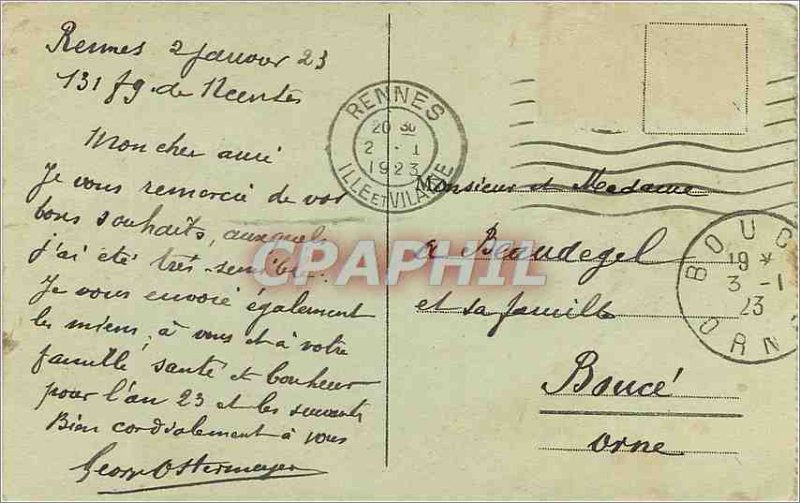 Rennes 2 janvier 23
131 fg. de Nantes
Mon cher ami
Je vous remercie de vos
bons souhaits, auxquels
j'ai été très sensible.
Je vous envoie également
les miens, à vous et à votre
famille, santé et bonheur
pour l'an 23 et les suivants
Bien cordialement à vous
Georg Ostermeyer
RENNES
20 30
2 - 1
1923
ILLE ET VILAINE
Monsieur et Madame
a Beaudegel
et sa famille
Boucé
Orne
BOUC
19 *
3 -1
23
ORN
CPAPHIL